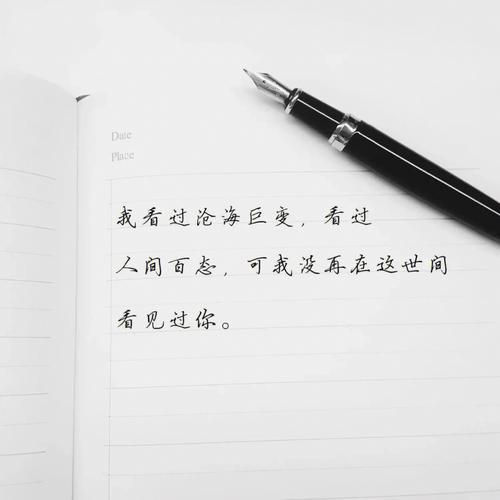 Date
Place
我看过沧海巨变，看过
人间百态，可我没再在这世间
看见过你。